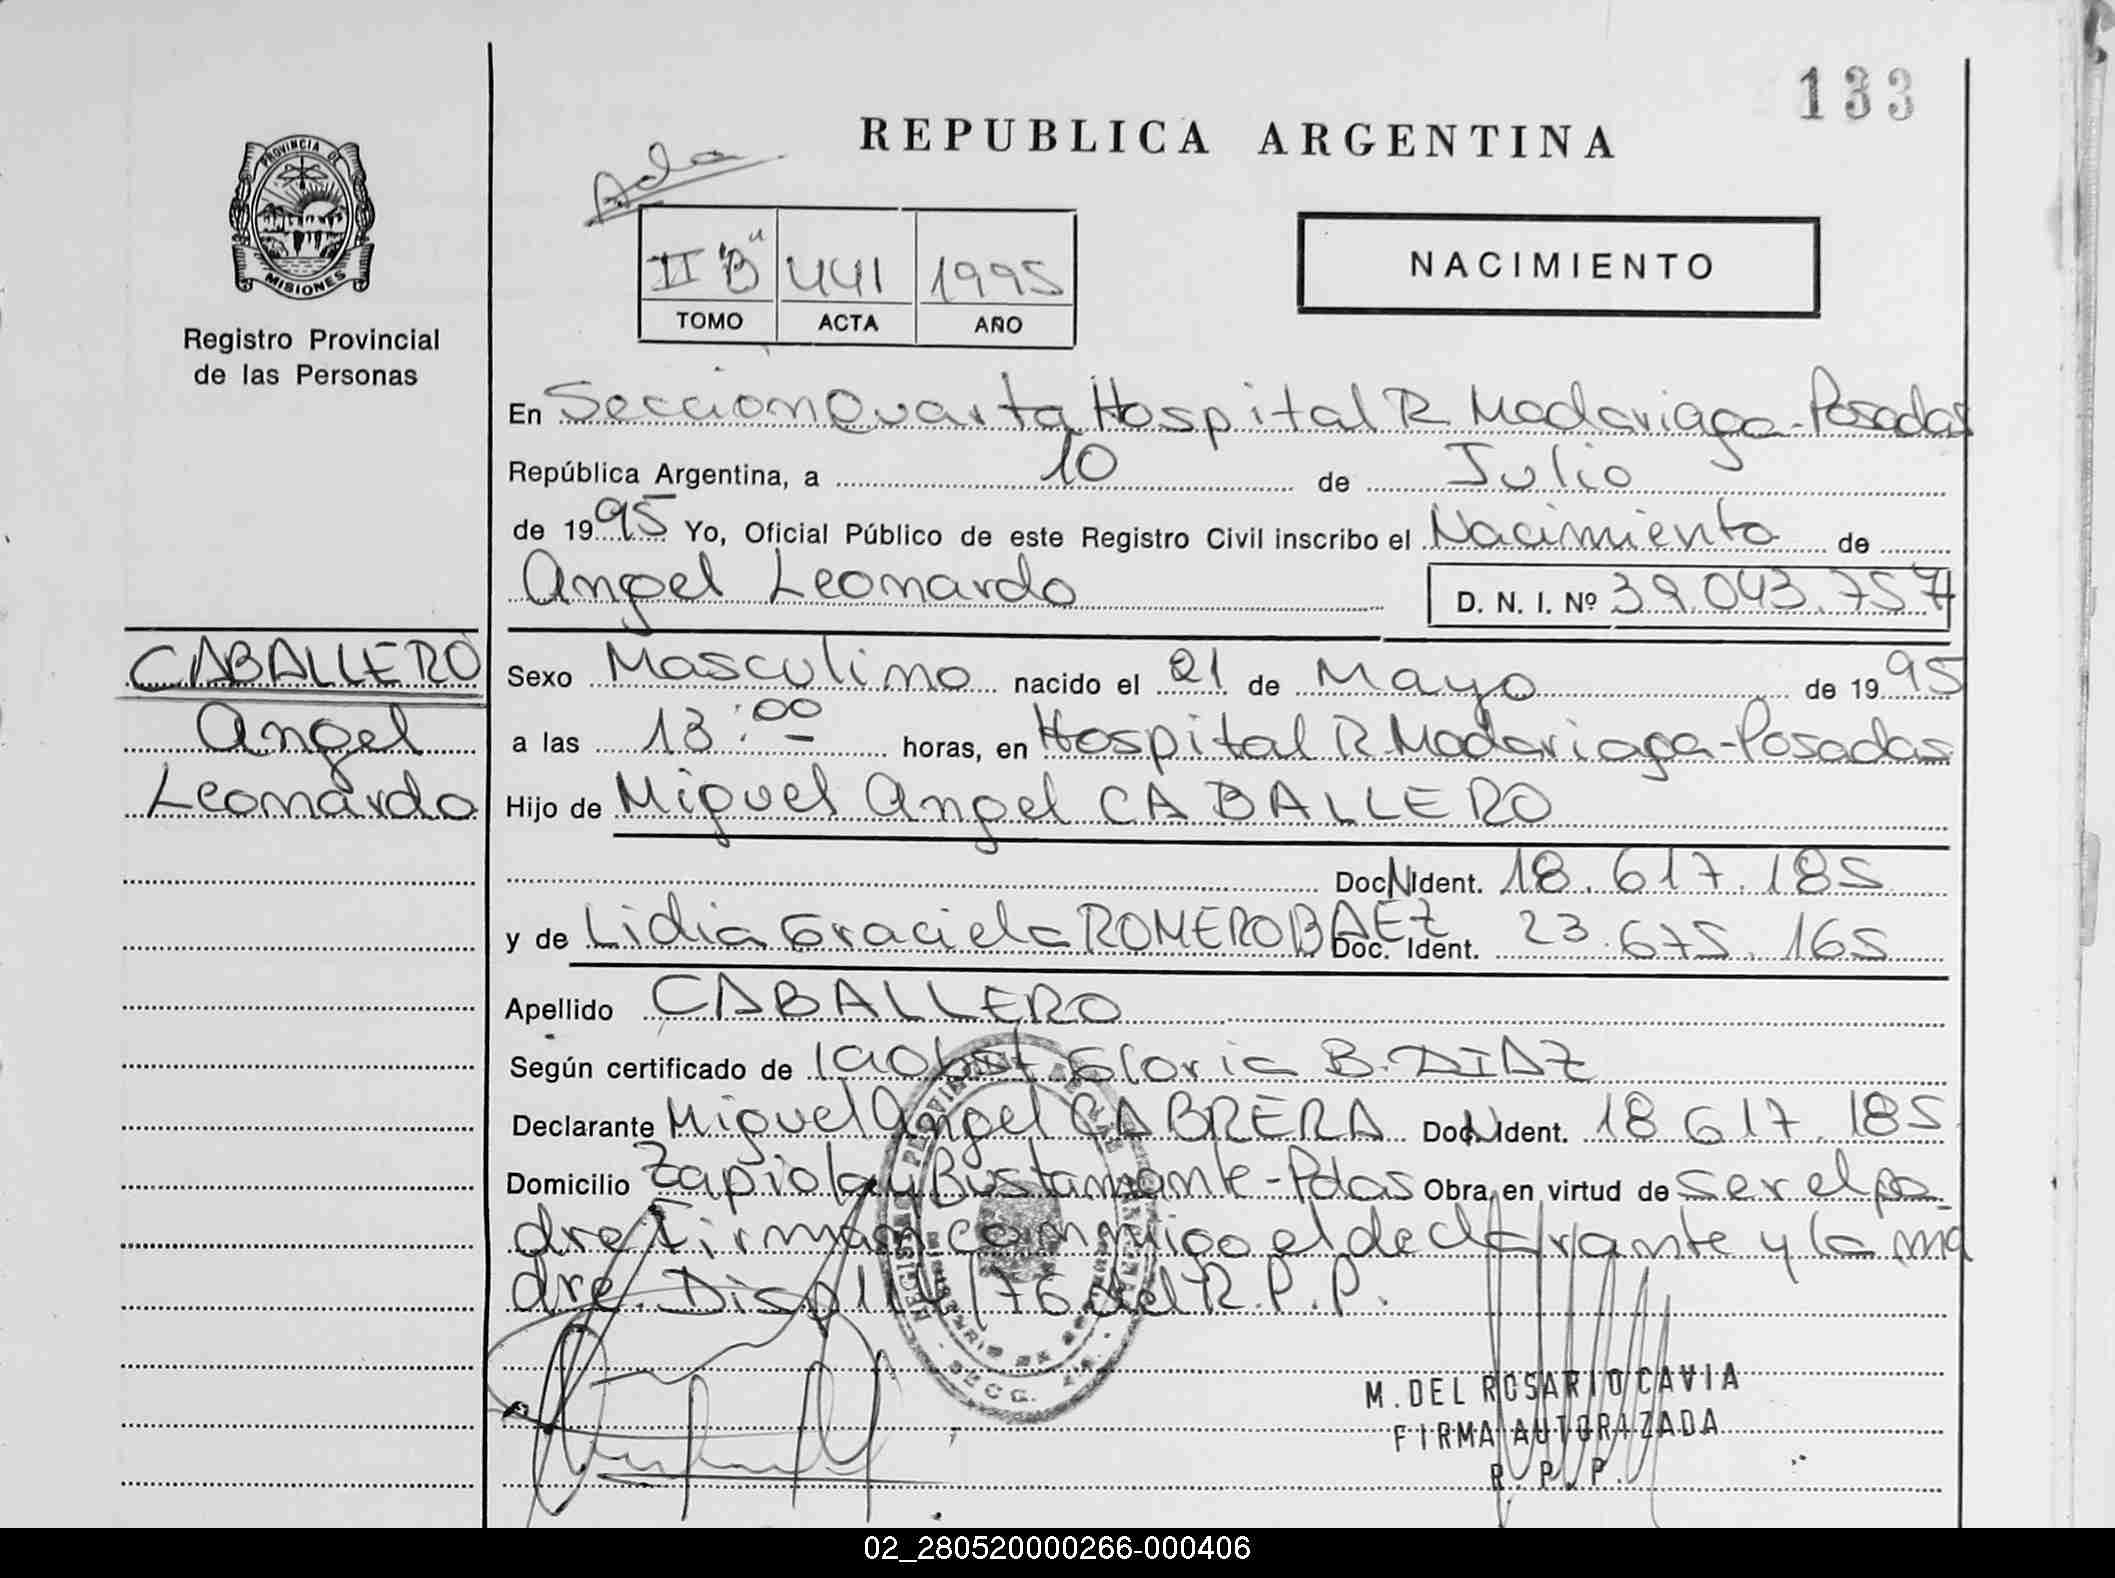 133
REPUBLICA ARGENTINA
PROVINCIA DE
MISIONES
Registro Provincial
de las Personas
Ada
II "B" 441 1995
TOMO ACTA AÑO
NACIMIENTO
En Seccion Quarta Hospital R Madariaga-Posadas
República Argentina, a 10 de Julio
de 1995 Yo, Oficial Público de este Registro Civil inscribo el Nacimiento de
Angel Leonardo D. N. I. Nº 39.043.757
CABALLERO
Angel
Leonardo
Sexo Masculino nacido el 21 de Mayo de 1995
a las 13:00 horas, en Hospital R Madariaga-Posadas
Hijo de Miguel Angel CABALLERO
Doc N Ident. 18.617.185
y de Lidia Graciela ROMERO BAEZ Doc. Ident. 23.675.165
Apellido CABALLERO
Según certificado de la Obst. Gloria B. DIAZ
Declarante Miguel Angel CABRERA Doc N Ident. 18 617.185
Domicilio Zapiola y Bustamante-Pdas Obra en virtud de ser el pa
dre Firman conmigo el declarante y la ma
dre. Disp 114/76 del R.P.P.
M. DEL ROSARIO CAVIA
FIRMA AUTORIZADA
R. P. P.
02_280520000266-000406